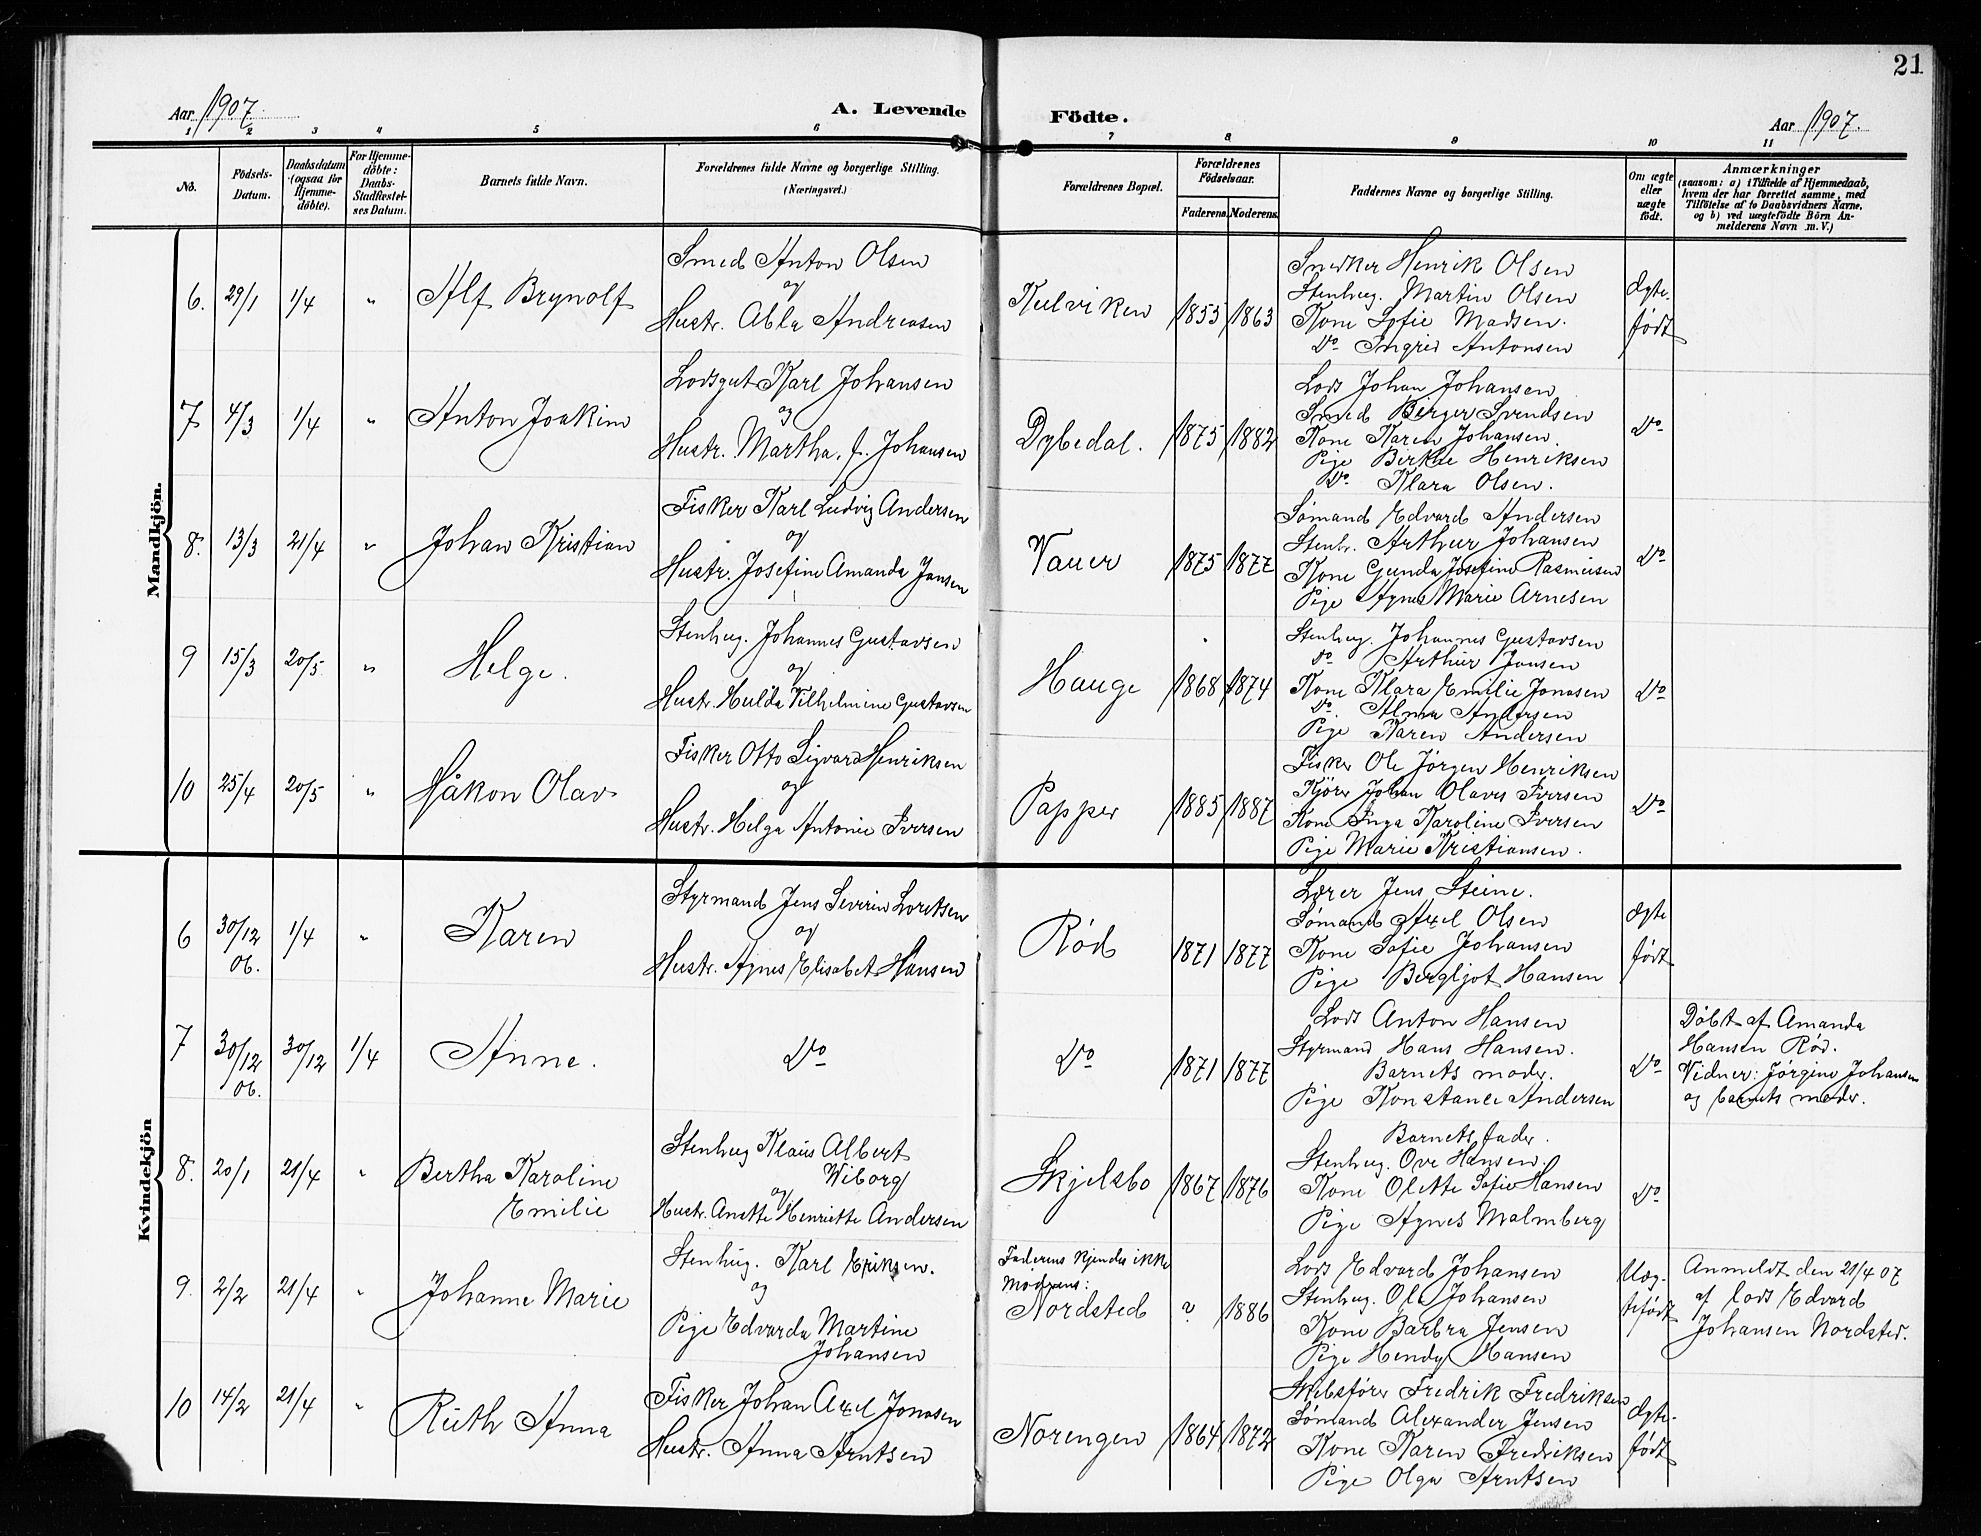 21
Aar 1907.
A. Levende
Födte.
Aar 1907.
1 2 3 4 5 6 7 8 9 10 11
No.
Födsels-
Datum.
Daabsdatum
(ogsaa for
Hjemme-
döbte).
For Hjemme-
döbte:
Daabs-
Stadfæstel-
ses Datum.
Barnets fulde Navn.
Forældrenes fulde Navne og borgerlige Stilling.
(Næringsvei.)
Forældrenes Bopæl.
Forældrenes
Födselsaar.
Faderens. Moderens.
Faddernes Navne og borgerlige Stilling.
Om ægte
eller
uægte
födt.
Anmærkninger
(saasom: a) i Tilfælde af Hjemmedaab,
hvem der har forrettet samme, med
Tilföielse af to Daabsvidners Navne,
og b) ved uægtefödte Börn An-
melderens Navn m. V.)
Mandkjön.
6. 29/1 1/4 " Alf Brynolf
Smed Anton Olsen
og
Hustr. Abla Andreasen
Kulviken 1855 1863
Snedker Henrik Olsen
Stenhug. Martin Olsen
Kone Sofie Madsen.
Do Ingrid Antonsen
Ægte-
født
7 4/3 1/4 " Anton Joakim
Lodsgut Karl Johansen
og
Hustr. Martha, f. Johansen
Dybedal. 1875 1882
Lods Johan Johansen
Smed Birger Svendsen
Kone Karen Johansen.
Pige Birthe Henriksen
Do. Klara Olsen.
Do
8. 13/3 21/4 " Johan Kristian
Fisker Karl Ludvig Andersen
og
Hustr. Josefine Amanda Jansen
Vauer 1875 1877
Sømand Edvard Andersen
Stenh. Arthur Johansen
Kone Gunda Josefine Rasmussen
Pige Agnes Marie Arnesen
Do
9 15/3 20/5 " Helge.
Stenhug. Johannes Gustavsen
og
Hustr. Hulda Vilhelmine Gustavsen
Hauge 1868 1874
Stenhug. Johannes Gustavsen
Do Arthur Jonsen
Kone Klara Emilie Jonasen
Do. Alma Andersen
Pige Karen Andersen
Do
10 25/4 20/5 " Håkon Olav
Fisker Otto Sigvard Henriksen
og
Hustr. Helga Antonie Iversen
Papper 1885 1887
Fisker Ole Jørgen Henriksen
Kjører Johan Olaves Iversen
Kone Inga Karoline Iversen
Pige Marie Kristiansen.
Do
Kvindekjön
6 30/12 06. 1/4 " Karen
Styrmand Jens Severin Loretsen
og
Hustr. Agnes Elisabet Hansen
Rød 1871 1877
Lærer Jens Steine.
Sømand Axel Olsen
Kone Sofie Johansen
Pige Bergljot Hansen
Ægte
født
7 30/12 06. 30/12 1/4 Anne.
Do
Do 1871 1877
Lods Anton Hansen
Styrmand Hans Hansen.
Barnets moder.
Pige Konstance Andersen
Do
Døbt af Amanda
Hansen Rød.
Vidner: Jørgine Johansen
og barnets moder.
8. 20/1 21/4 " Bertha Karoline
Emilie
Stenhug Klaus Albert
Wiborg
og
Hustr. Anette Henriette Andersen
Skjelsbo 1867 1876
Barnets fader.
Stenhug. Ove Hansen.
Kone Olette Sofie Hansen
Pige Agnes Malmberg
Do
9. 2/2 21/4 " Johanne Marie
Stenhug. Karl Eriksen.
og
Pige Edvarda Martine
Johansen
Faderens kjendes ikke
Modrens:
Nordsted ? 1886
Lods Edvard Johansen
Stenhug. Ole Johansen
Kone Barbra Jensen
Pige Hendy Hansen
Uæg-
tefødt
Anmeldt den 21/4 07
af lods Edvard
Johansen Nordsted.
10 14/2 21/4 " Ruth Anna
Fisker Johan Axel Jonasen
Hustr. Anna Arntsen
Norengen 1864 1872
Skibsfører Fredrik Fredriksen
Sømand Alexander Jensen
Kone Karen Fredriksen
Pige Olga Arntsen
Ægte-
født